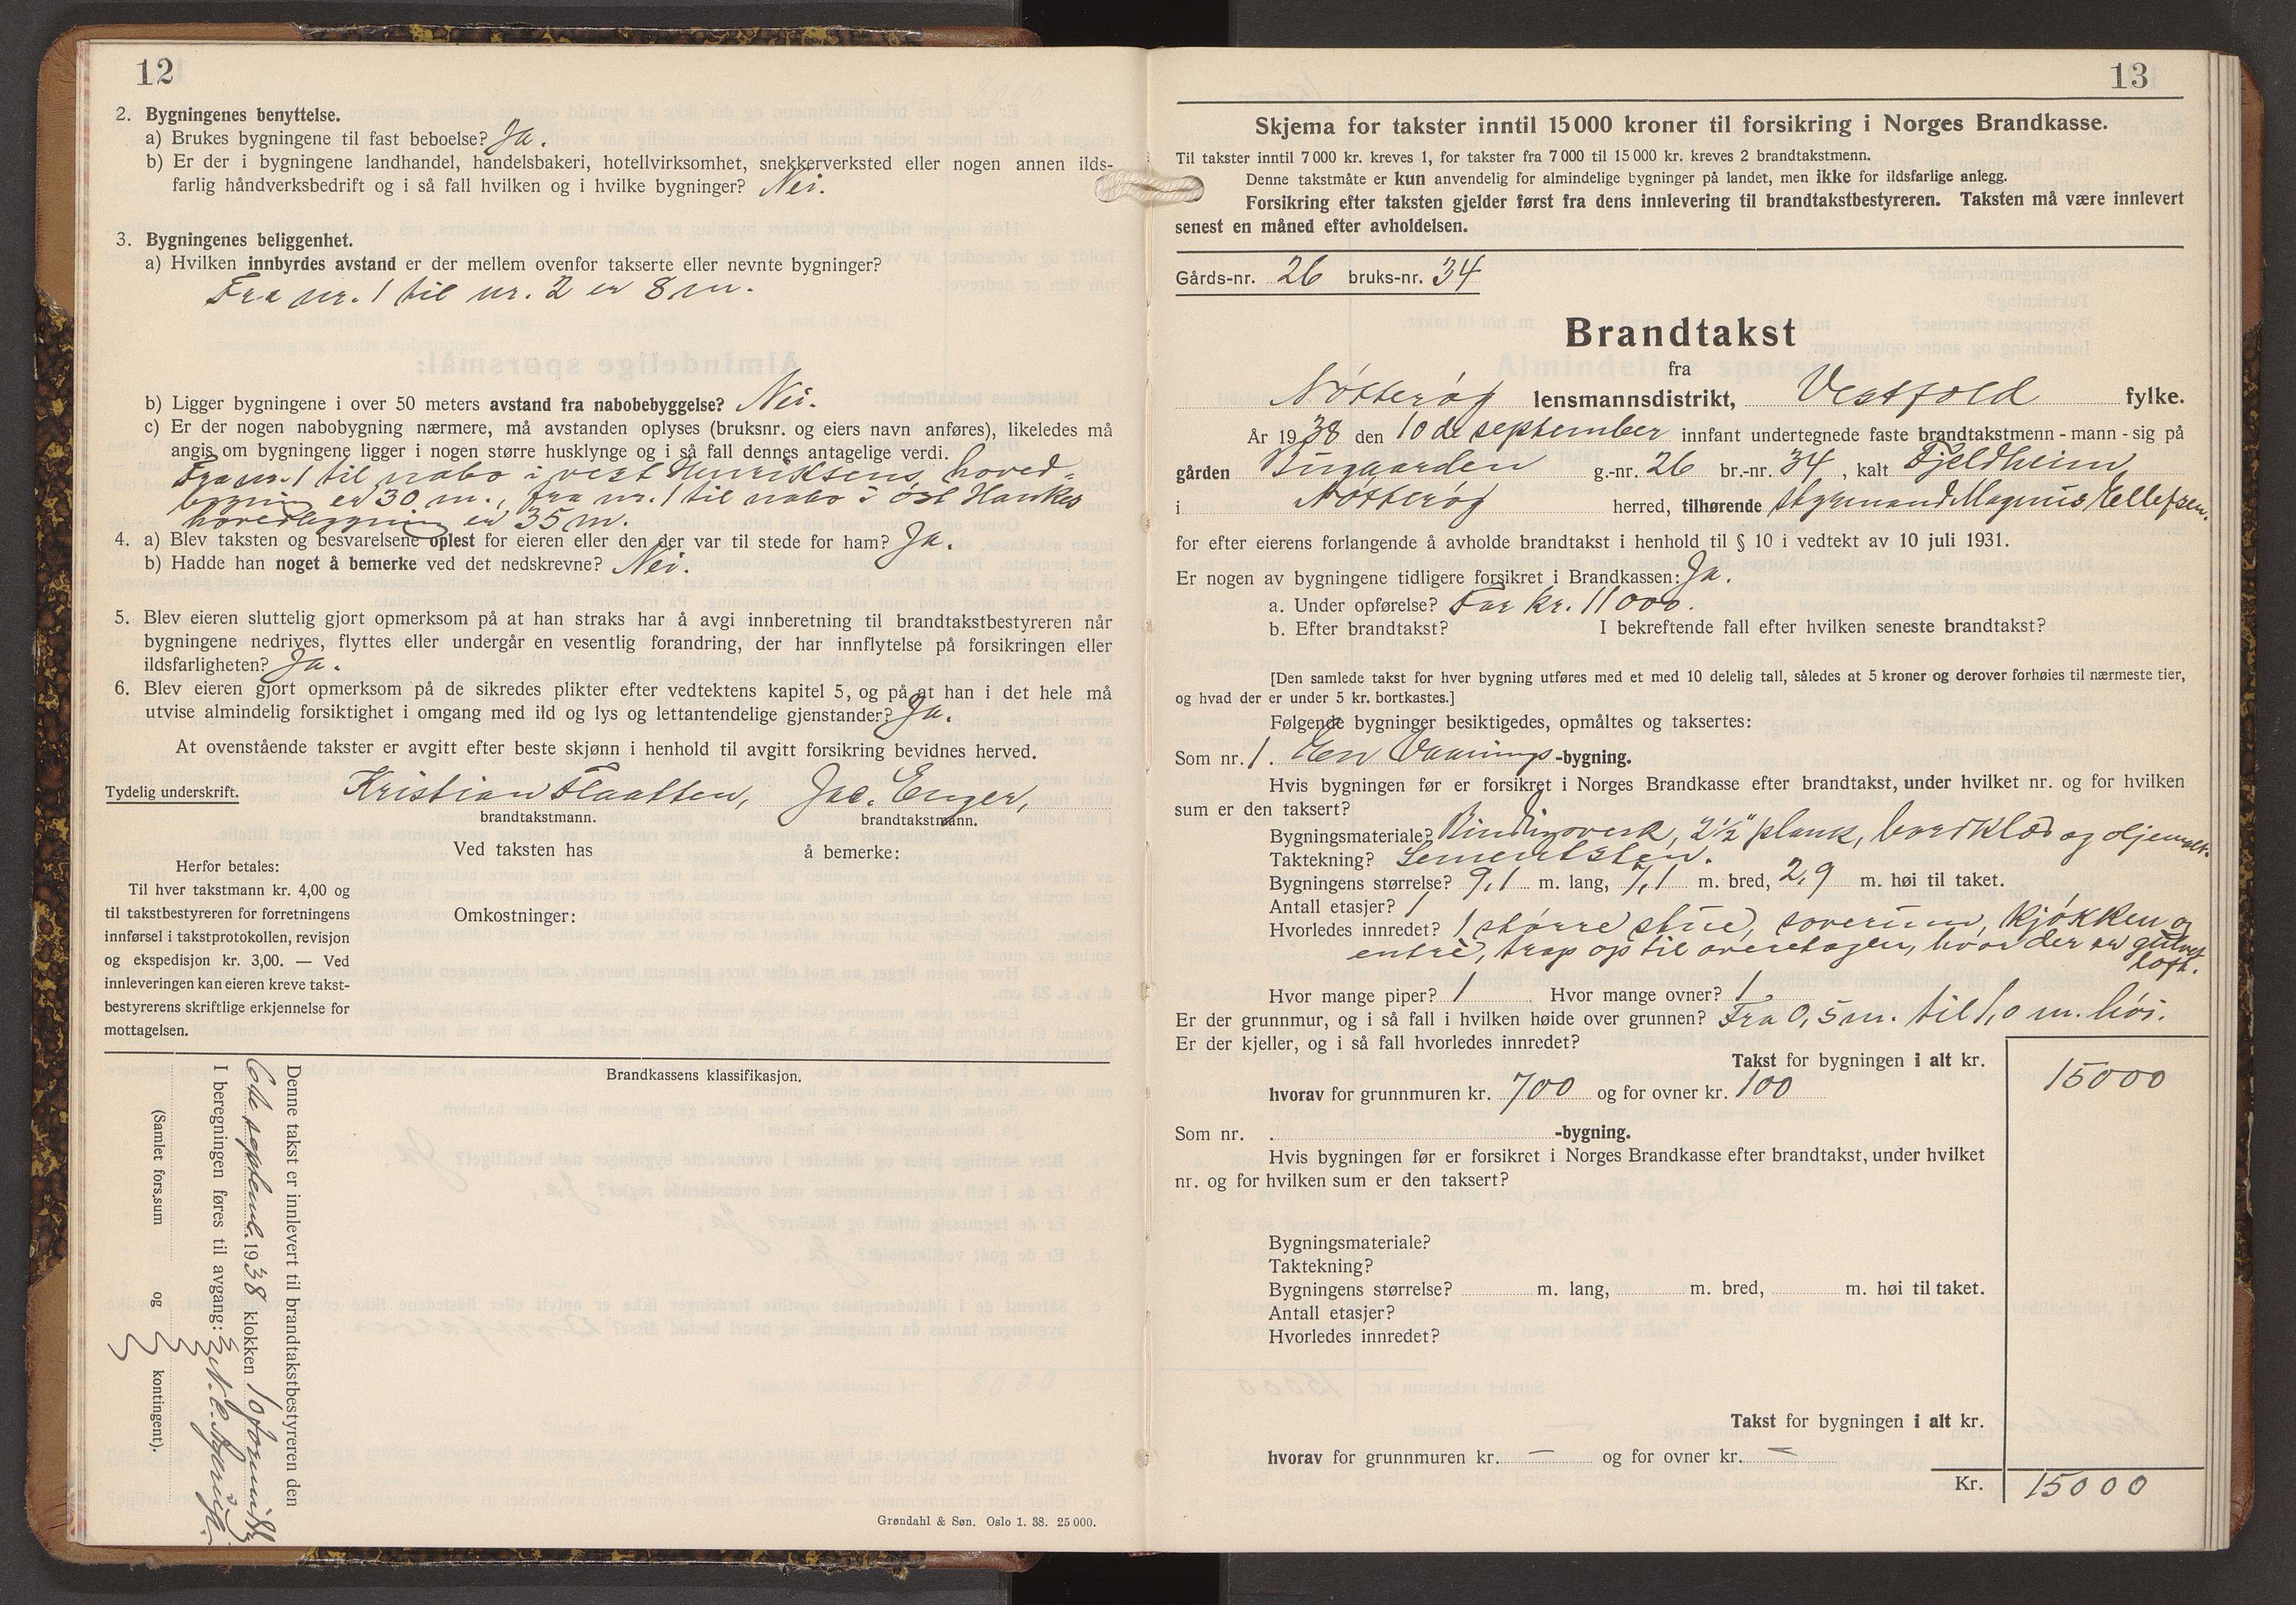 12
2. Bygningenes benyttelse.
a) Brukes bygningene til fast beboelse? Ja.
b) Er der i bygningene landhandel, handelsbakeri, hotellvirksomhet, snekkerverksted eller nogen annen ilds-
farlig håndverksbedrift og i så fall hvilken og i hvilke bygninger? Nei.
3. Bygningenes beliggenhet.
a) Hvilken innbyrdes avstand er der mellem ovenfor takserte eller nevnte bygninger?
Fra nr. 1 til nr. 2 er 8 m.
b) Ligger bygningene i over 50 meters avstand fra nabobebyggelse? Nei.
c) Er der nogen nabobygning nærmere, må avstanden oplyses (bruksnr. og eiers navn anføres), likeledes må
angis om bygningene ligger i nogen større husklynge og i så fall dennes antagelige verdi.
Fra nr. 1 til nabo i vest Henriksens hoved-
bygning er 30 m., fra nr. 1 til nabo i öst Hankes
hovedbygning er 35 m.
4. a) Blev taksten og besvarelsene oplest for eieren eller den der var til stede for ham? Ja.
b) Hadde han noget å bemerke ved det nedskrevne? Nei.
5. Blev eieren sluttelig gjort opmerksom på at han straks har å avgi innberetning til brandtakstbestyreren når
bygningene nedrives, flyttes eller undergår en vesentlig forandring, der har innflytelse på forsikringen eller
ildsfarligheten? Ja.
6. Blev eieren gjort opmerksom på de sikredes plikter efter vedtektens kapitel 5, og på at han i det hele må
utvise almindelig forsiktighet i omgang med ild og lys og lettantendelige gjenstander? Ja.
At ovenstående takster er avgitt efter beste skjønn i henhold til avgitt forsikring bevidnes herved.
Tydelig underskrift. Kristian Flaatten, Jac. Enger,
brandtakstmann. brandtakstmann.
Ved taksten has å bemerke:
Herfor betales:
Til hver takstmann kr. 4,00 og
til takstbestyreren for forretningens
innførsel i takstprotokollen, revisjon
og ekspedisjon kr. 3,00. — Ved
innleveringen kan eieren kreve takst-
bestyrerens skriftlige erkjennelse for
mottagelsen.
Omkostninger:
Brandkassens klassifikasjon.
Denne takst er innlevert til brandtakstbestyreren den
6de septemb. 1938 klokken 10 formidd.
I beregningen føres til avgang:
(Samlet fors.sum og kontingent).
Grøndahl & Søn. Oslo 1. 38. 25 000.
13
Skjema for takster inntil 15 000 kroner til forsikring i Norges Brandkasse.
Til takster inntil 7 000 kr. kreves 1, for takster fra 7 000 til 15 000 kr. kreves 2 brandtakstmenn.
Denne takstmåte er kun anvendelig for almindelige bygninger på landet, men ikke for ildsfarlige anlegg.
Forsikring efter taksten gjelder først fra dens innlevering til brandtakstbestyreren. Taksten må være innlevert
senest en måned efter avholdelsen.
Gårds-nr. 26 bruks-nr. 34
Brandtakst
fra
Nötteröy lensmannsdistrikt, Vestfold fylke.
År 1938 den 10de september innfant undertegnede faste brandtakstmenn - mann - sig på
gården Bugaarden g.-nr. 26 br.-nr. 34, kalt Fjeldheim
i Nötteröy herred, tilhørende styrmand Magnus Ellefsen.
for efter eierens forlangende å avholde brandtakst i henhold til § 10 i vedtekt av 10 juli 1931.
Er nogen av bygningene tidligere forsikret i Brandkassen: Ja.
a. Under opførelse? For kr. 11000.
b. Efter brandtakst? I bekreftende fall efter hvilken seneste brandtakst?
[Den samlede takst for hver bygning utføres med et med 10 delelig tall, således at 5 kroner og derover forhøies til nærmeste tier,
og hvad der er under 5 kr. bortkastes.]
Følgende bygninger besiktigedes, opmåltes og taksertes:
Som nr. 1. En Vaanings-bygning.
Hvis bygningen før er forsikret i Norges Brandkasse efter brandtakst, under hvilket nr. og for hvilken
sum er den taksert?
Bygningsmateriale? Bindingsverk, 2½" plank, bordklæd og oljemalt.
Taktekning? Sementsten.
Bygningens størrelse? 9,1 m. lang, 7,1 m. bred, 2,9 m. høi til taket.
Antall etasjer? 1
Hvorledes innredet? 1 större stue, soverum, kjökken og
entrè, trap op til overetagen, hvor der er gulvet
loft.
Hvor mange piper? 1 Hvor mange ovner? 1
Er der grunnmur, og i så fall i hvilken høide over grunnen? Fra 0,5 m. til 1,0 m. höi.
Er der kjeller, og i så fall hvorledes innredet?
Takst for bygningen i alt kr. 15000
hvorav for grunnmuren kr. 700 og for ovner kr. 100
Som nr. . -bygning.
Hvis bygningen før er forsikret i Norges Brandkasse efter brandtakst, under hvilket
nr. og for hvilken sum er den taksert?
Bygningsmateriale?
Taktekning?
Bygningens størrelse? m. lang, m. bred, m. høi til taket.
Antall etasjer?
Hvorledes innredet?
Takst for bygningen i alt kr.
hvorav for grunnmuren kr. — og for ovner kr. —
Kr. 15000